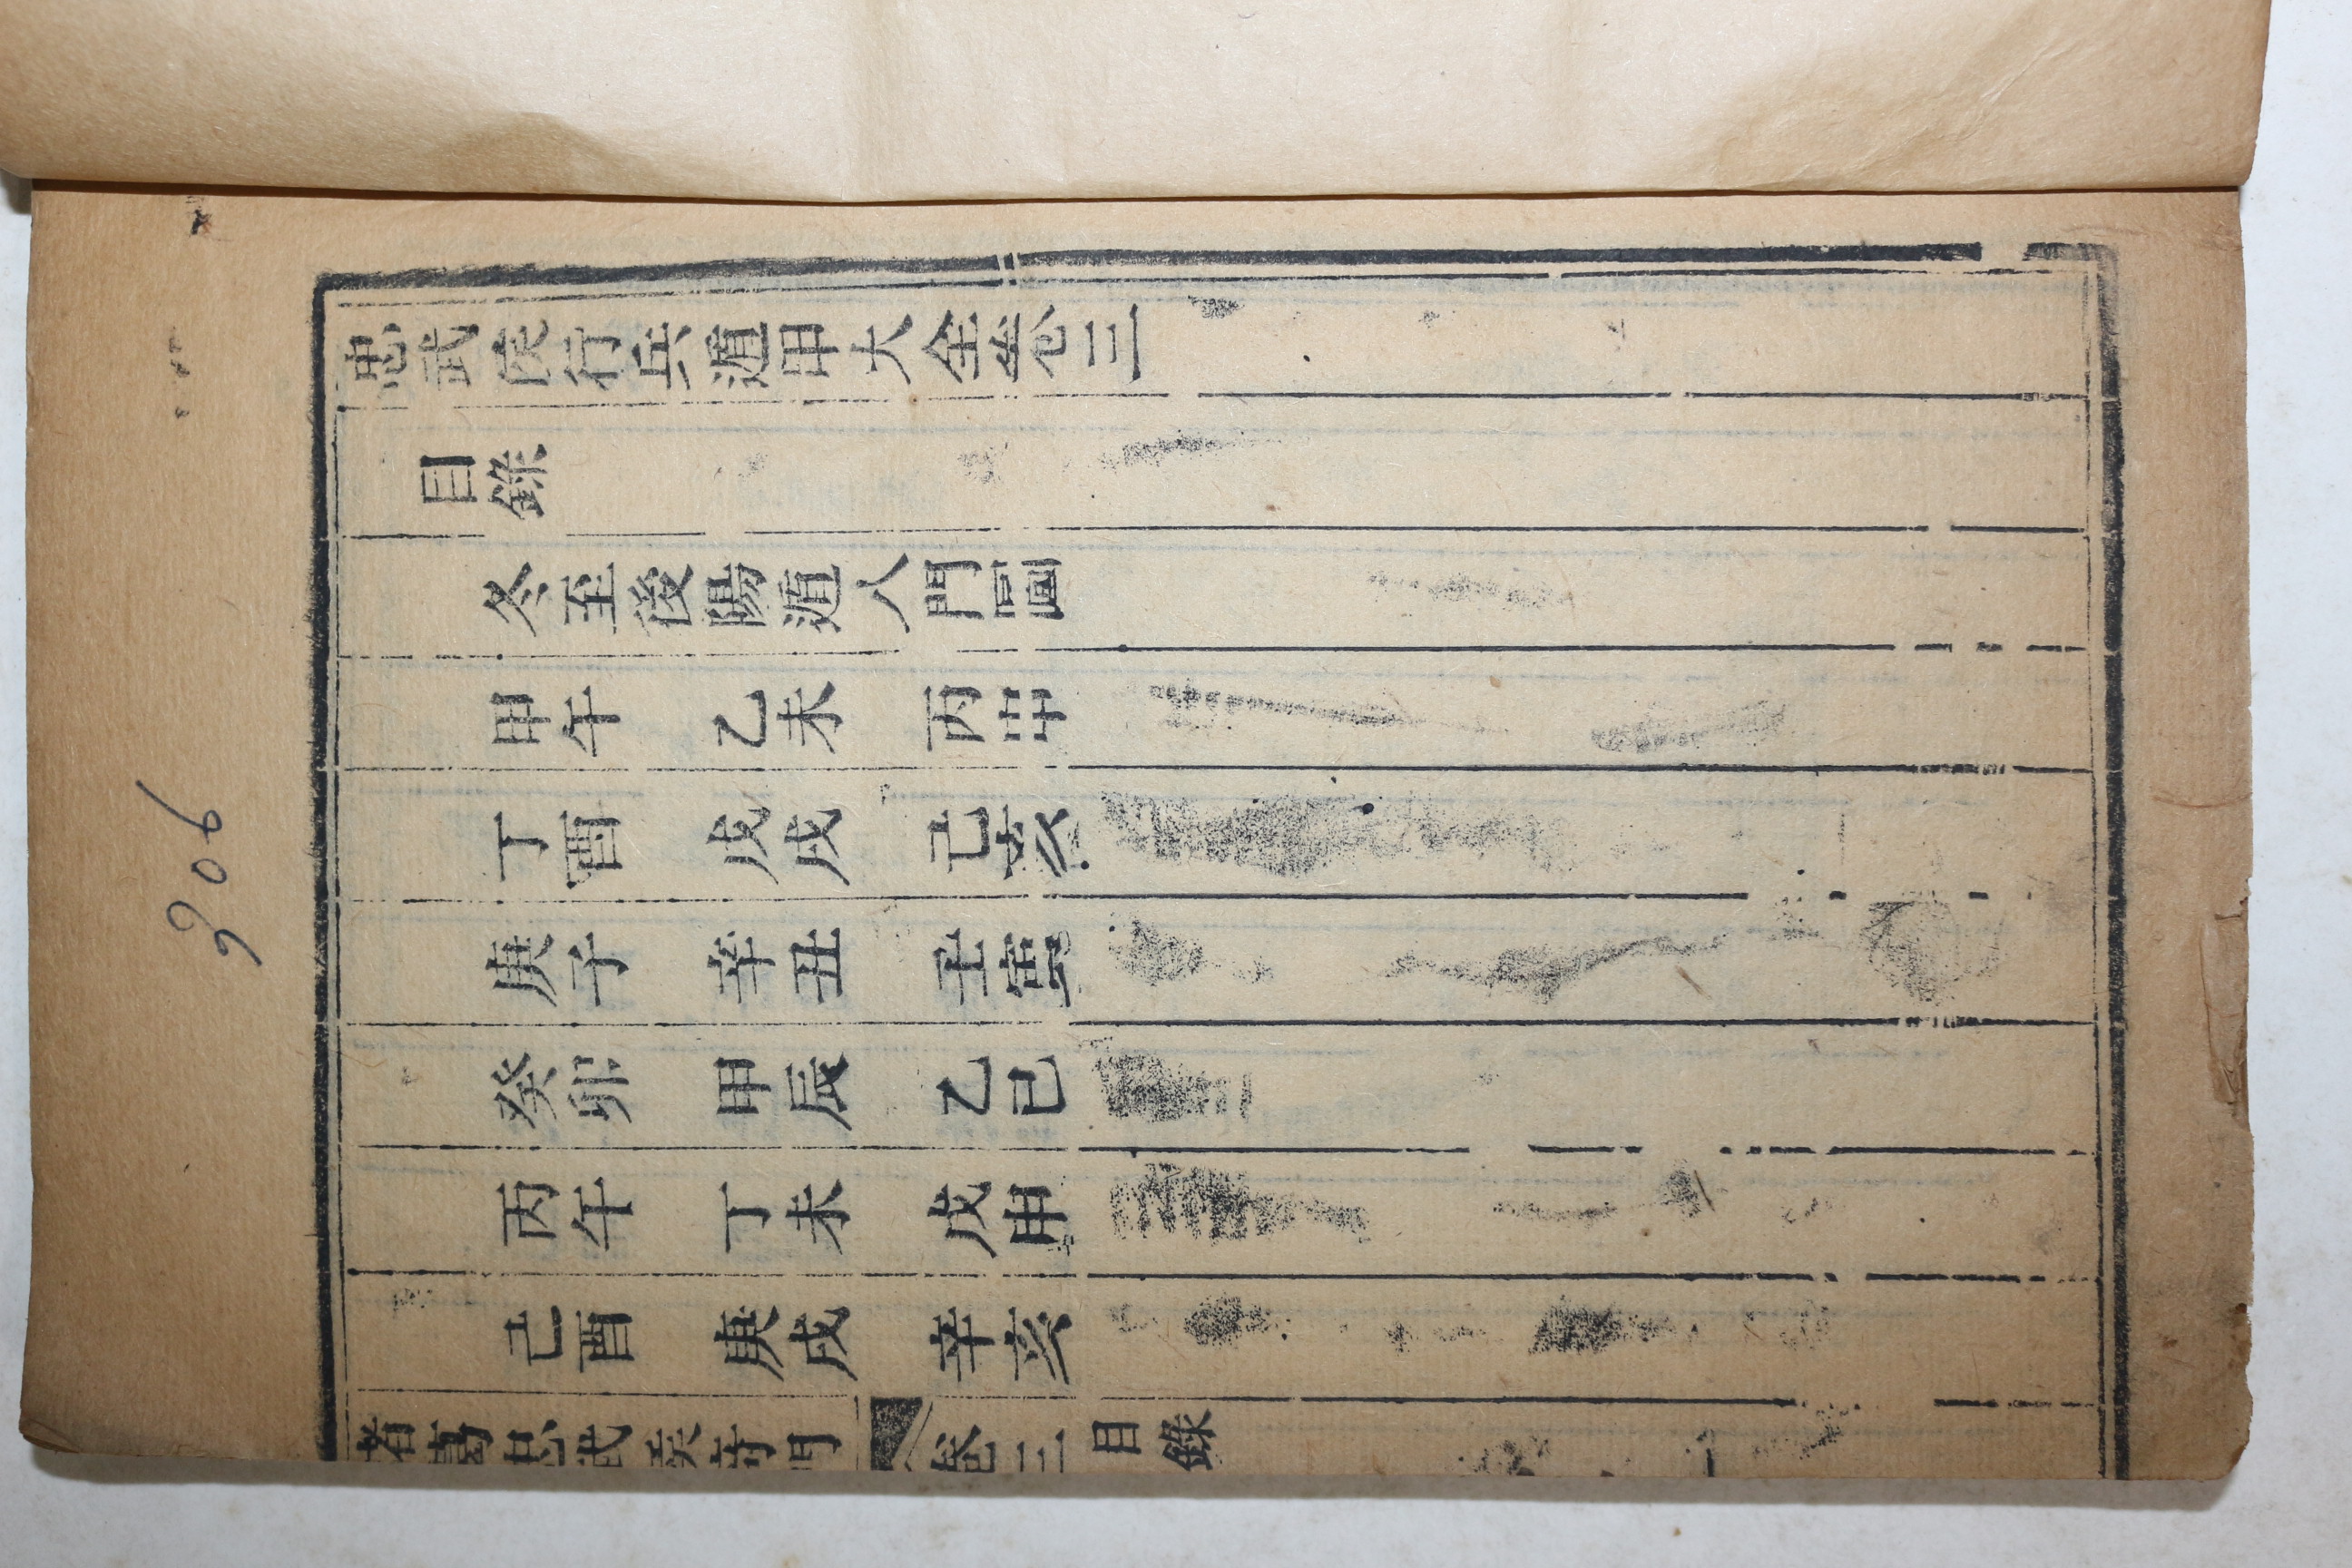 306
忠武侯行兵遁甲大全卷三
目錄
冬至後陽遁八門圖
甲午 乙未 丙申
丁酉 戊戌 己亥
庚子 辛丑 壬寅
癸卯 甲辰 乙巳
丙午 丁未 戊申
己酉 庚戌 辛亥
諸葛忠武侯奇門 卷三 目錄